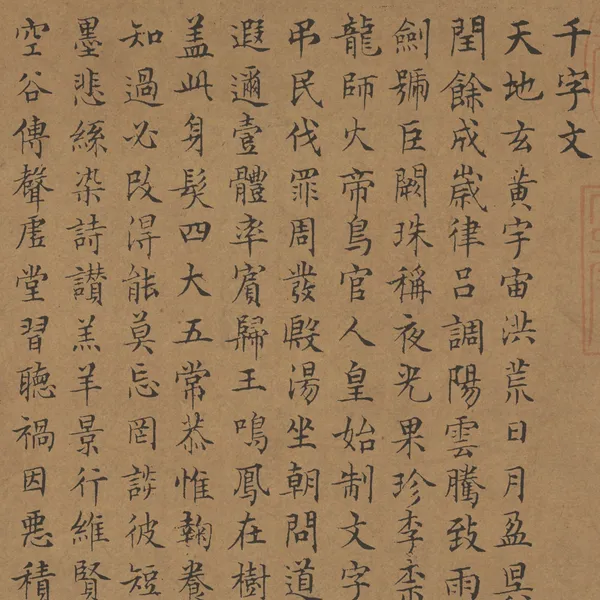 千字文
天地玄黃宇宙洪荒日月盈昃
閏餘成歲律呂調陽雲騰致雨
劍號巨闕珠稱夜光果珍李柰
龍師火帝鳥官人皇始制文字
吊民伐罪周發殷湯坐朝問道
遐邇壹體率賓歸王鳴鳳在樹
盖此身髮四大五常恭惟鞠養
知過必改得能莫忘罔談彼短
墨悲絲染詩讃羔羊景行維賢
空谷傳聲虛堂習聽禍因惡積